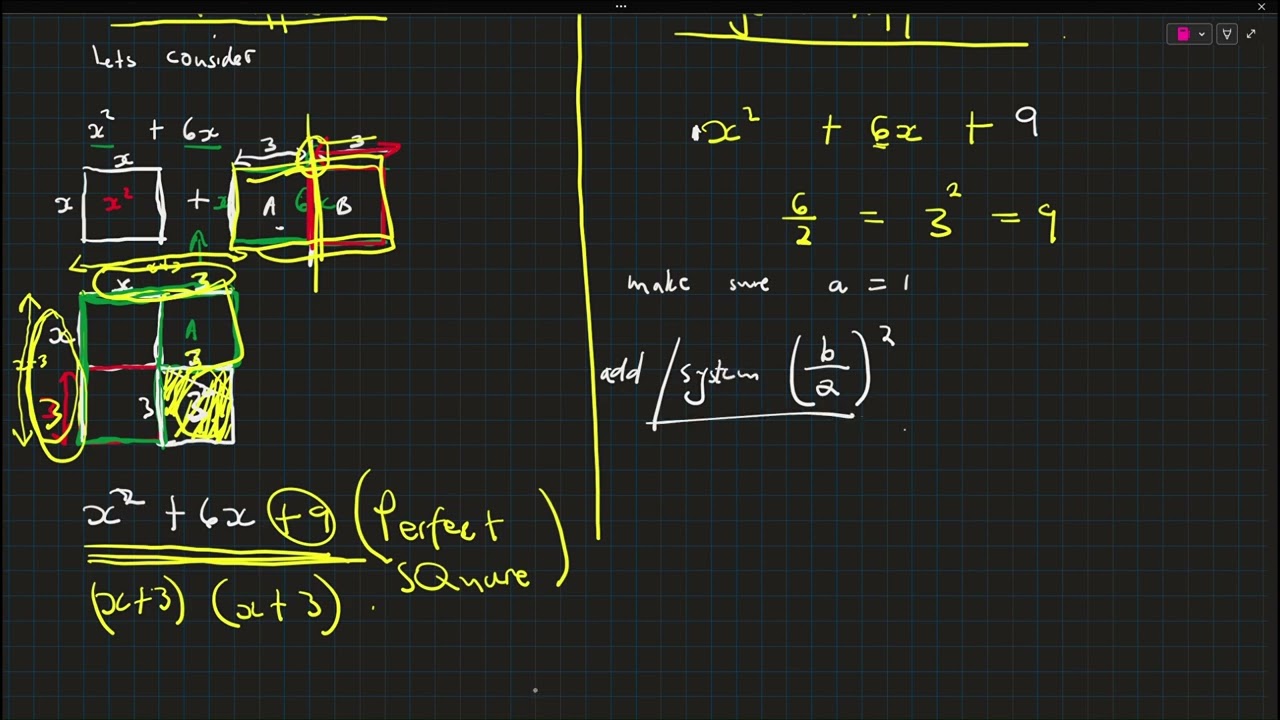 Lets consider
x² + 6x
x
3
3
x
x²
+
x
A
6x
B
x
3
x
A
x+3
3
3
3
3²
x² + 6x +9 (Perfect
SQuare)
(x+3) (x+3)
x² + 6x + 9
6/2 = 3² = 9
make sure a = 1
add / system (b/2)²